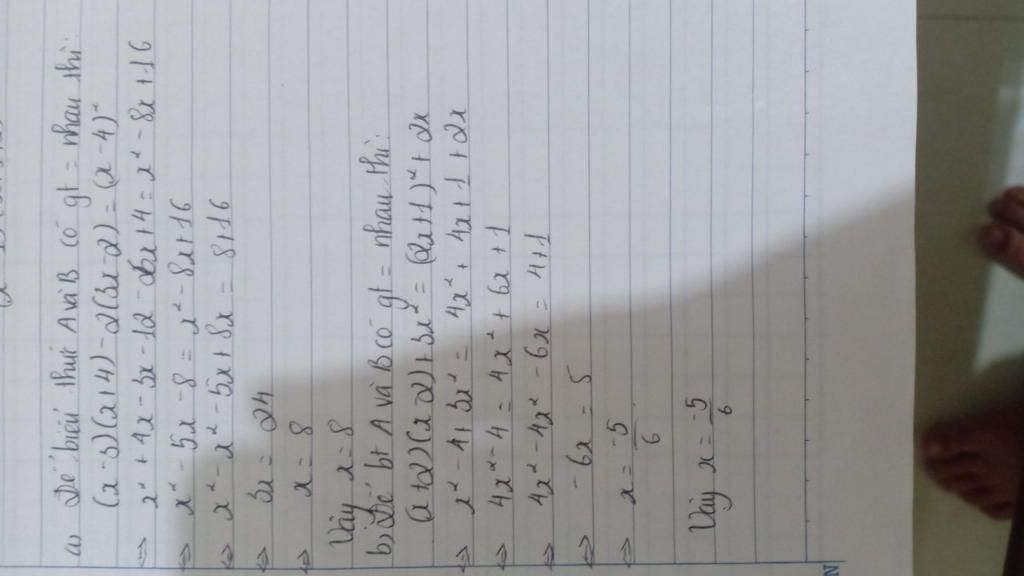 a) Để biểu thức A và B có gt = nhau thì:
(x-3)(x+4)-2(3x-2)=(x-4)²
⇔ x²+4x-3x-12-6x+4=x²-8x+16
⇔ x²-5x-8=x²-8x+16
⇔ x²-x²-5x+8x=8+16
⇔ 3x=24
⇔ x=8
Vậy x=8
b) Để bt A và B có gt = nhau thì:
(x+2)(x-2)+3x²=(2x+1)²+2x
⇔ x²-4+3x²=4x²+4x+1+2x
⇔ 4x²-4=4x²+6x+1
⇔ 4x²-4x²-6x=4+1
⇔ -6x=5
⇔ x=-5/6
Vậy x=-5/6
N